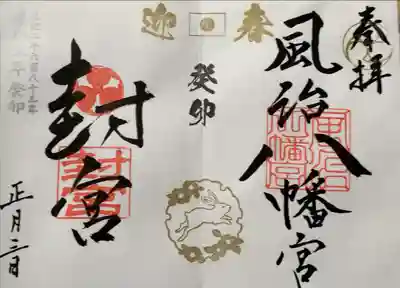 奉拝
風治八幡宮
迎春
癸卯
封宮
正月三日